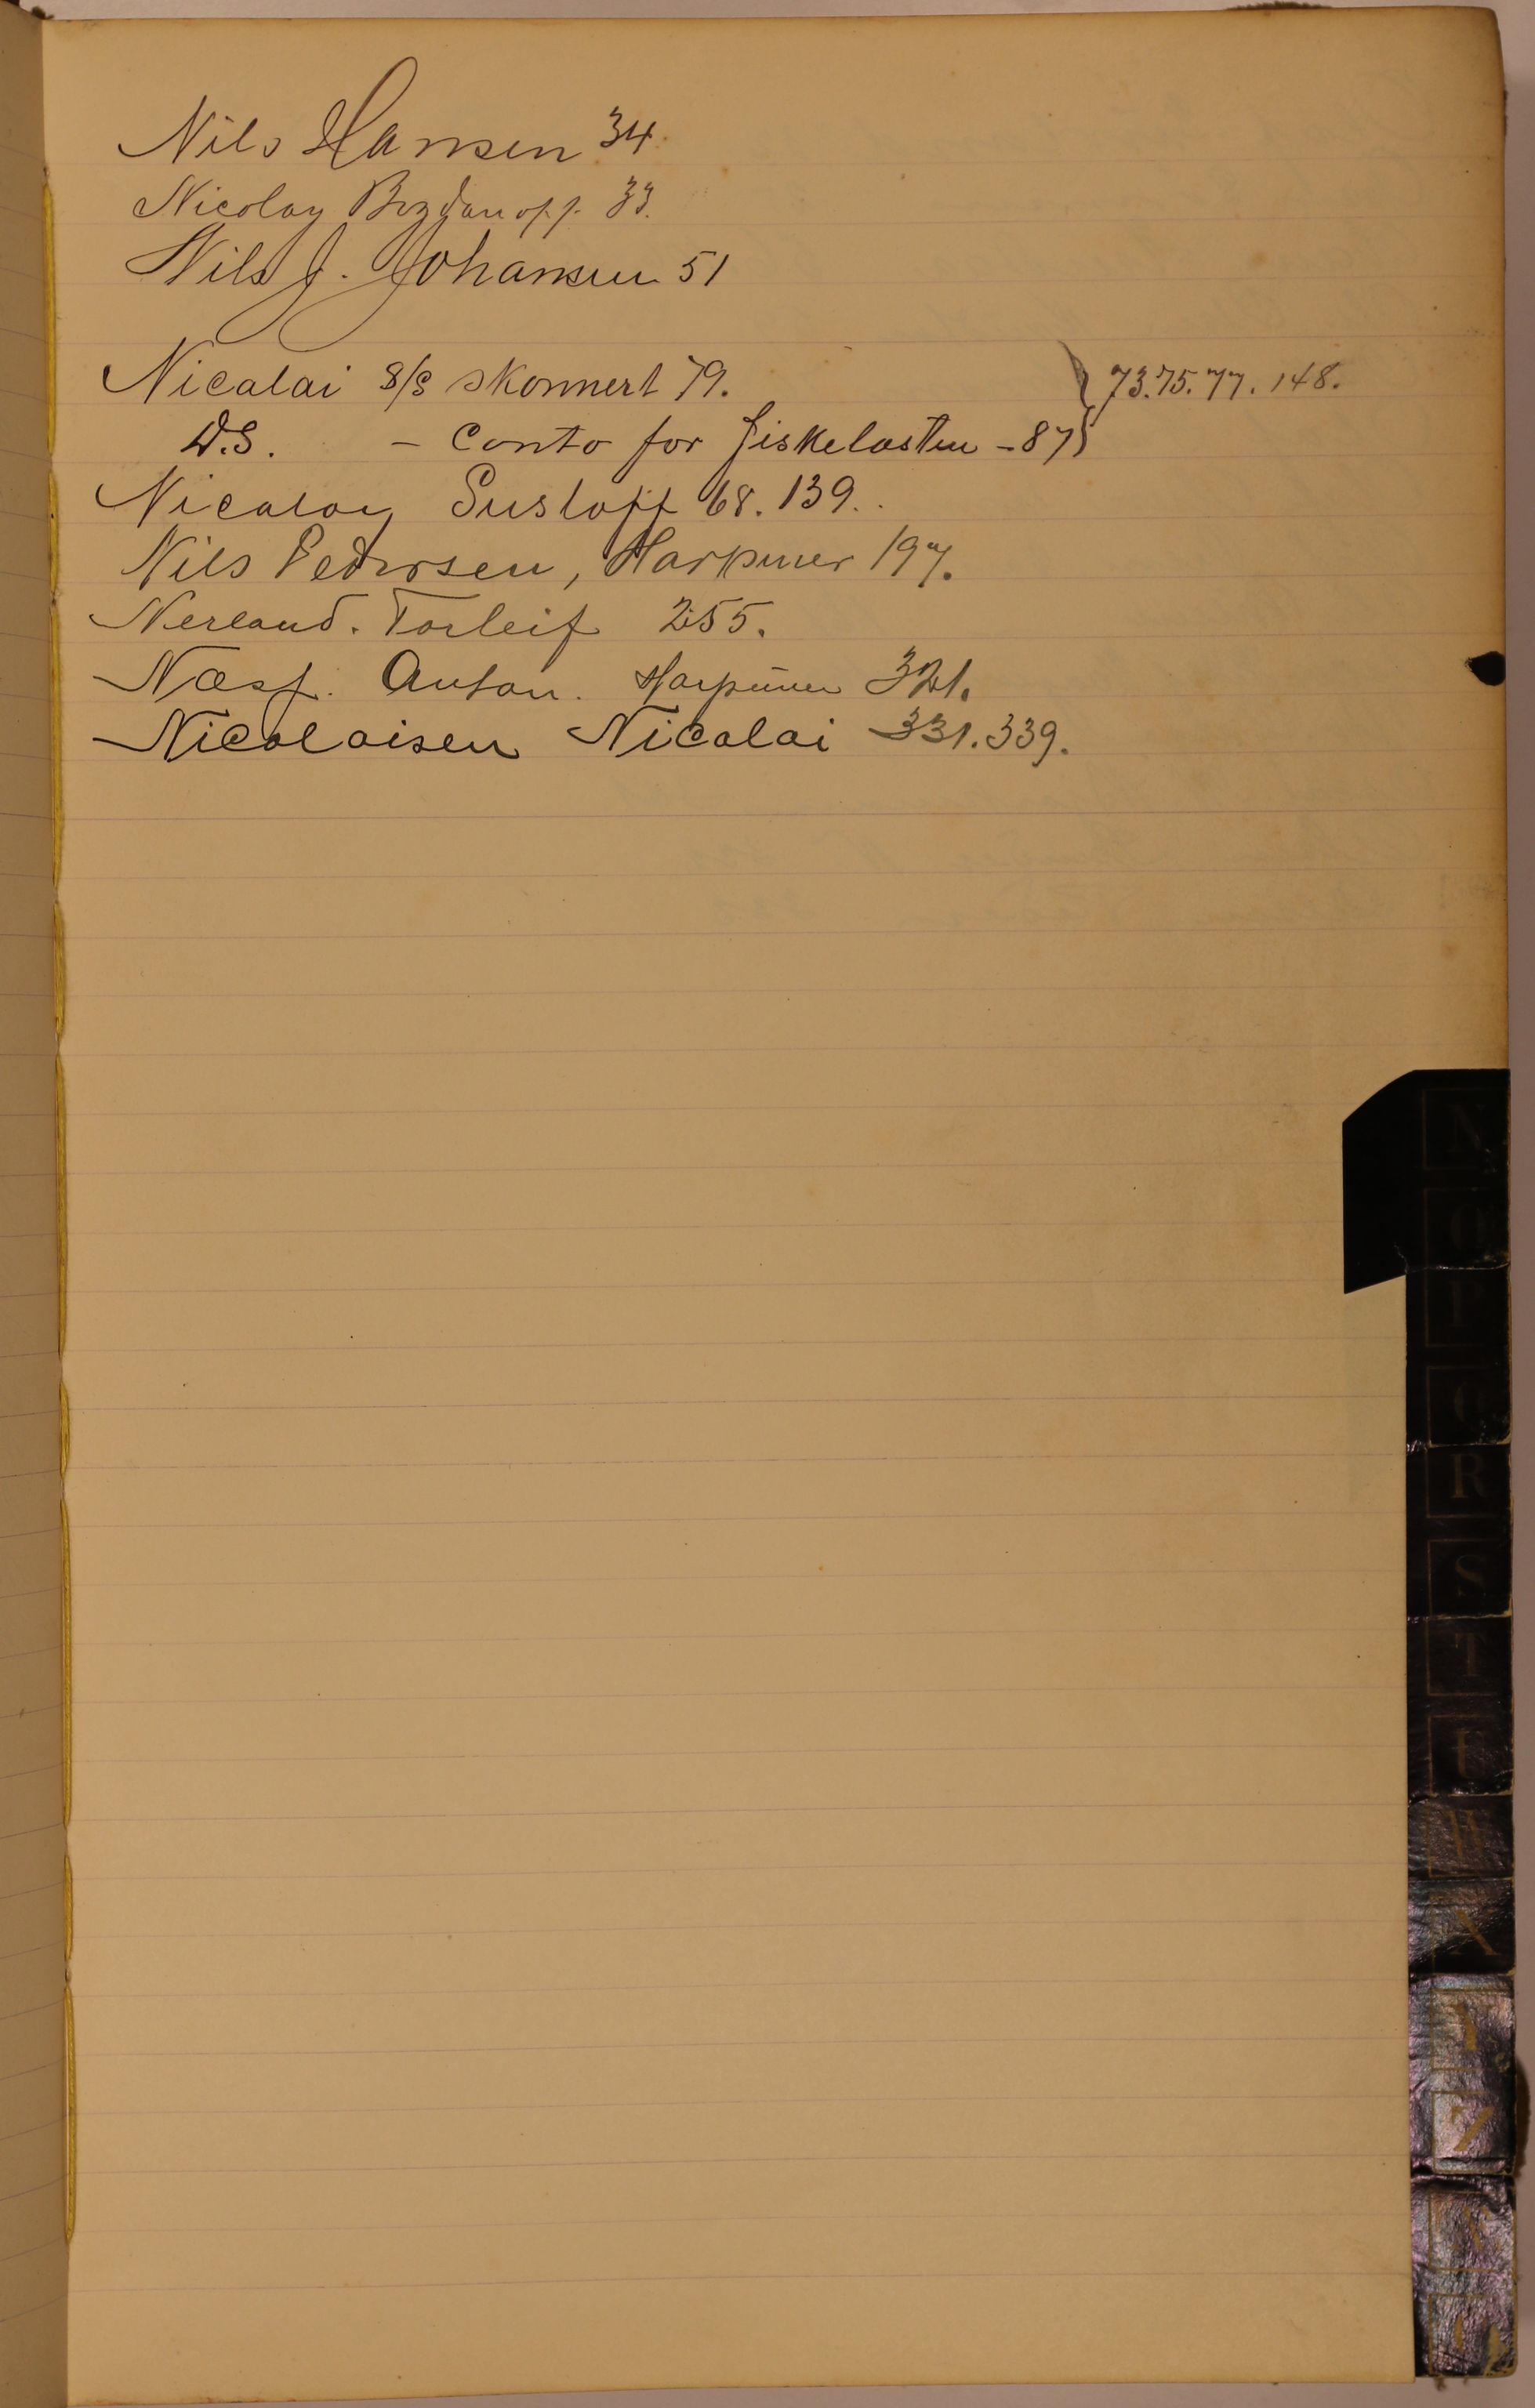 Nils Hansen 34.
Nicolay Bogdanoff. 33.
Nils J. Johansen 51
Nicalai S/S skonnert 79. } 73.75.77.148.
D.S. - Conto for fiskelasten - 87}
Nicalay Susloff 68. 139..
Nils Pedersen, Harpuner 197.
Nerland. Torleif 255.
Næss. Anton. Harpuner 321.
Nicolaisen Nicolai 331.339.
N
O
P
R
S
T
U
W
X
Y
Z